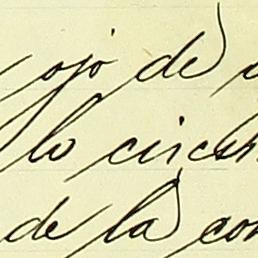 ojo de
lo circun
de la con